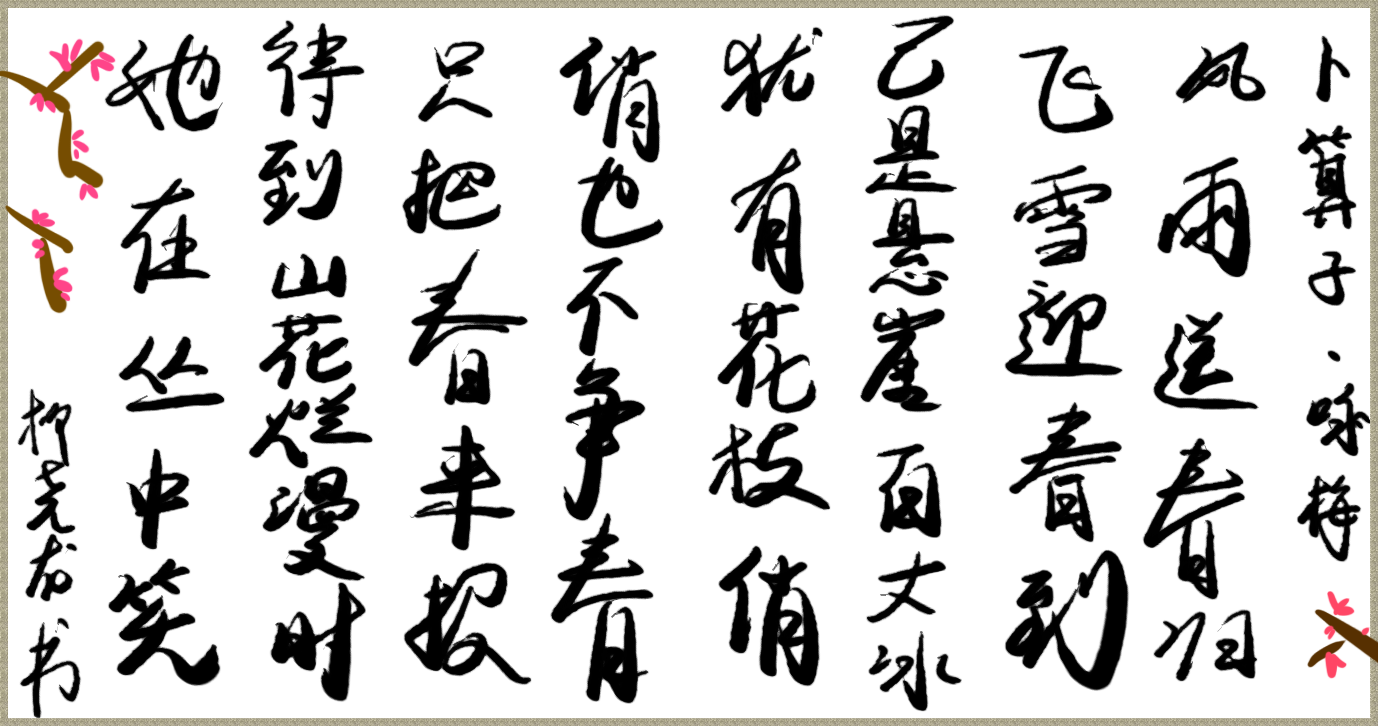 卜算子·咏梅
风雨送春归
飞雪迎春到
已是悬崖百丈冰
犹有花枝俏
俏也不争春
只把春来报
待到山花烂漫时
她在丛中笑
柳尧书